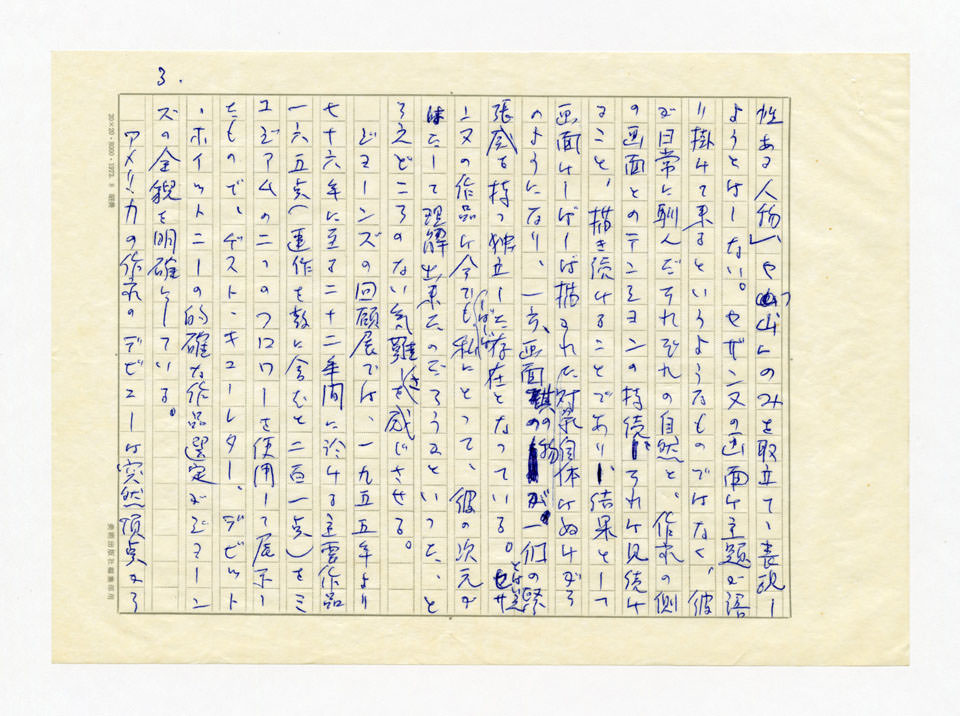 3.
性ある人物」や「山」のみを取立て、表現し
ようとはしない。セザンヌの画面は主題が語
り掛けて来るというようなものではなく、彼
が日常に馴んだそれぞれの自然と、作家の側
の画面とのテンションの持続、それは見続け
ること、描き続けることであり、結果として
画面はしばしば描かれた対象自体はぬけがら
のようになり、一方、画面の物が一個の緊
張感を持つ独立した存在となっている。とは言えセザ
ンヌの作品は今でもしばしば私にとって、彼の次元が
はたして理解出来たのだろうかといった、と
らえどころのない気難しさを感じさせる。
ジョーンズの回顧展では、一九五五年より
七十六年に至る二十二年間に於ける主要作品
一六五点(連作を数に含むと二百一点)をミ
ュジアムの二つのフロワーを使用して展示し
たもので、ゲスト・キューレター、デビット
・ホイットニーの的確な作品選定がジョーン
ズの全貌を明確にしている。
アメリカの作家のデビューは突然頂点から
20×20・8000・1973.8
美術出版社編集部用